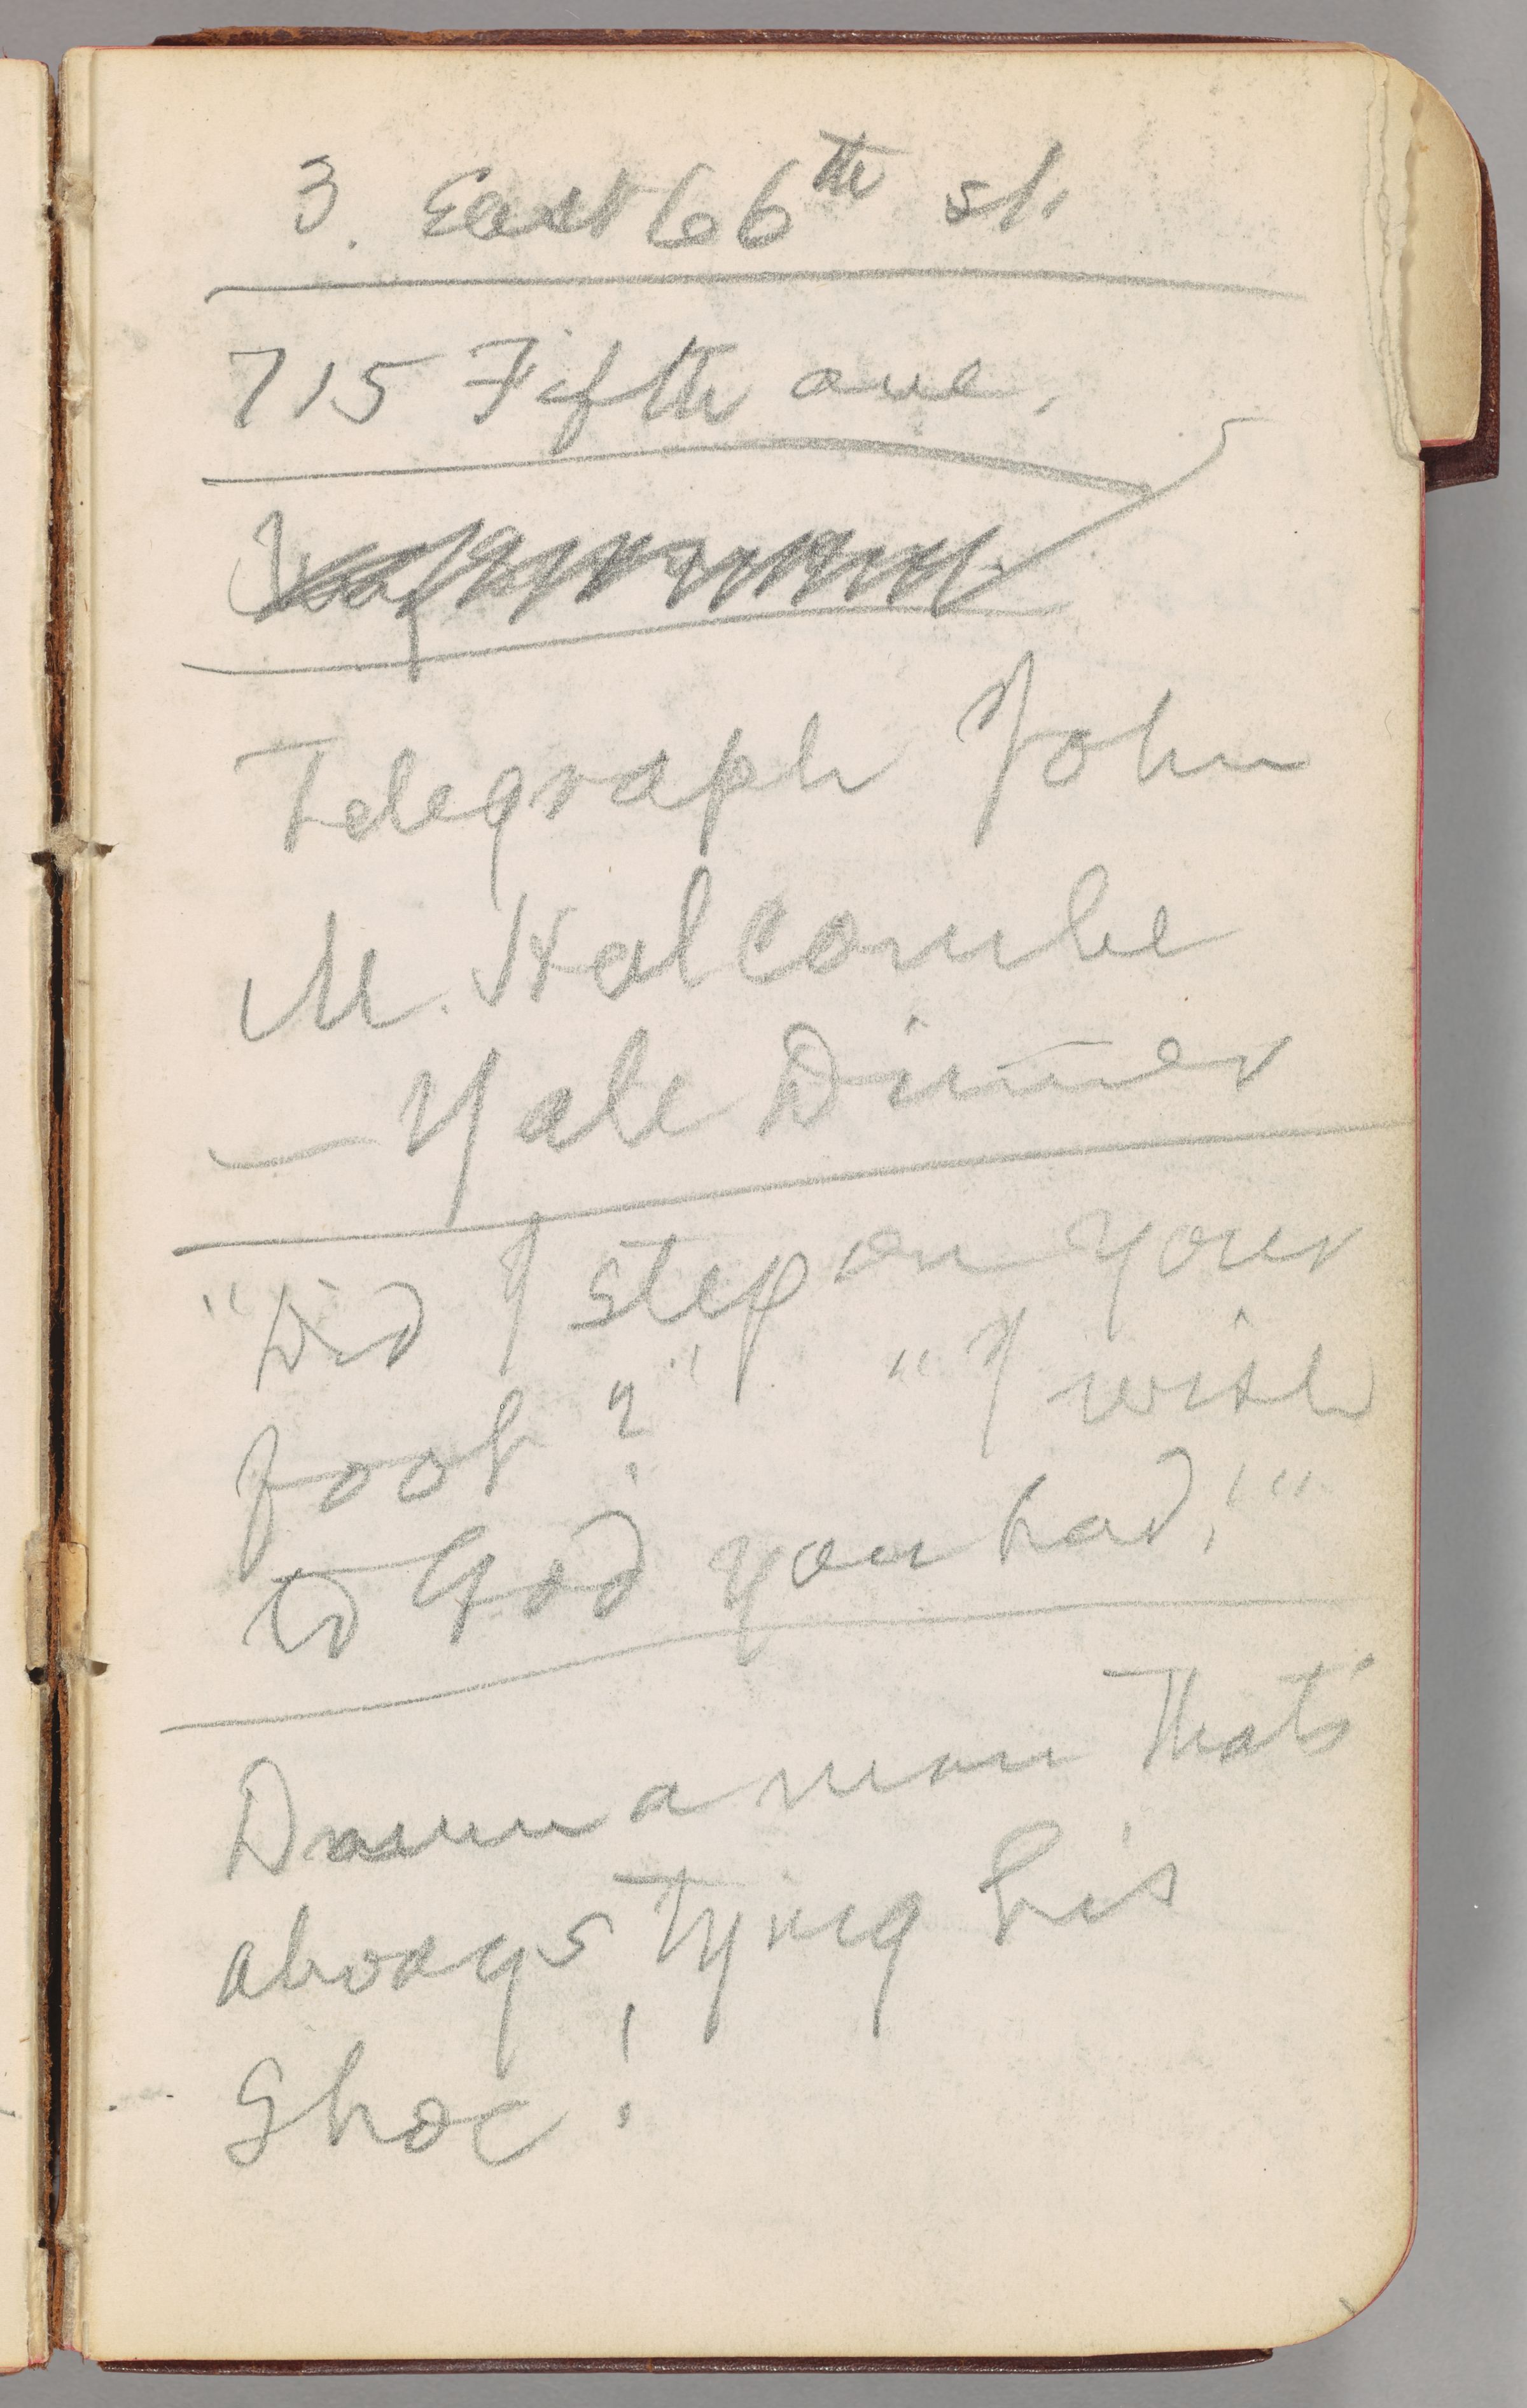 3. East 66th st.
715 Fifth ave.
Telegraph John
M. Holcombe
— Yale Dinner
"Did I step on your
foot?" "I wish
to God you had!"
Damn a man that's
always tying his
shoe!